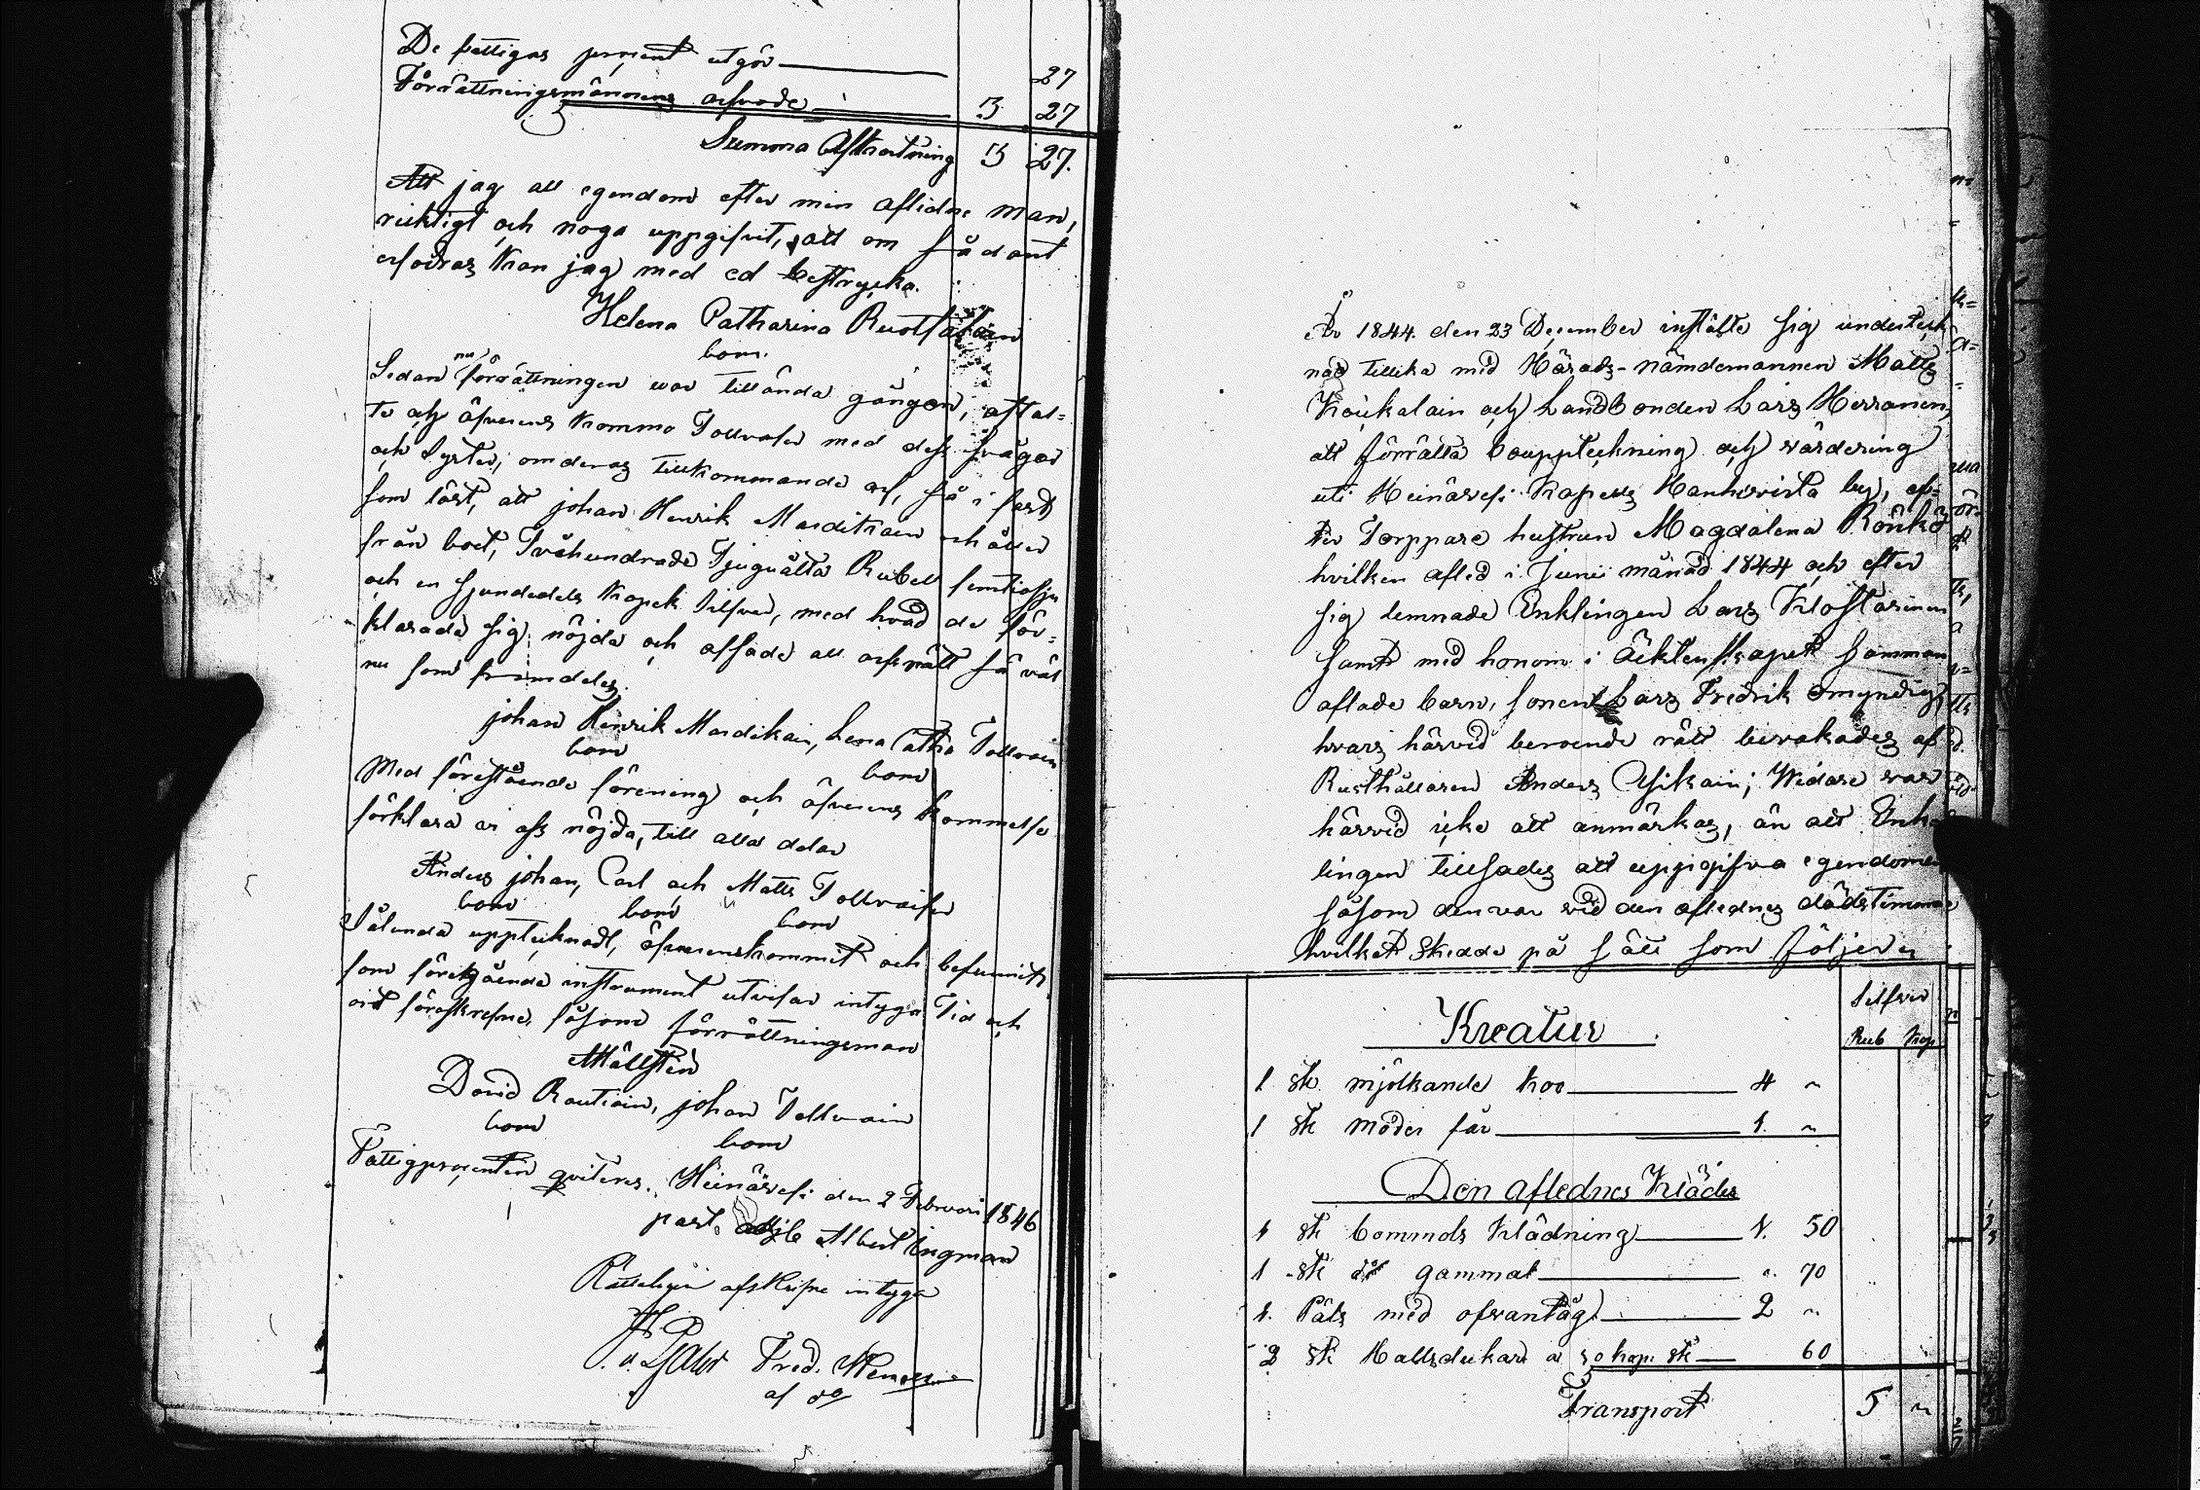 De fattigas procent utgör 27
Förrättningsmännens arfvode 3 27
Summa Afkortning 3 27.
Att jag all egendom efter min aflidne man,
riktigt och noga uppgifvit, att om sådant
erfodras kan jag med ed bestryka.
Helena Catharina Ruotsalain
bom.
Sedan nu förrättningen war till ända gången, aftal=
te och öfverens kommo Tollvaisr med dess svåger
och Syster, om deras tillkommande arf, så i fast
som löst, att johan Henrik Mardikain erhåller
från boet, Tvåhundrade Tjuguåtta Rubel femtiosju
och en sjundedels Kopek Silfver, med hvad de för=
klarade sig nöjda och afsade all arfsrätt så väl
nu som framdeles.
johan Henrik Mardikain, Lena Catha Tollvain
bom bom
Med förestående förening och öfverens kommelse
förklara vi oss nöjda, till alla delar
Anders johan, Carl och Matts Tollvaisr
bom bom bom
Sålunda upptecknadt, öfverenskommit och befunnits
som föregående instrument utvisar intyga Tid och
ort föreskrefne, såsom förrättningsman
A Hällsten
David Rautiain, johan Tollvain
bom bom
Fattigprocenten qviteras. Heinävesi den 2 Februari 1846
past. adj. Albert Ingman
Rätteligen afskrifne intyga
Fred.
af do
År 1844 den 23 December instälte sig undertek
nad tillika med Härads-nämdemannen Matts
Koukalain och Landbonden Lars Herranen,
att förrätta bouppteckning och värdering
uti Heinävesi Kapells Kanhivirta by, ef=
ter Torppare hustrun Magdalena Rönkö
hvilken afled i Junii månad 1844 och efter
sig lemnade Enklingen Lars Klostarinen
samt med honom i Äcktenskapet samman
aflade barn, sonen Lars Fredrik omyndig,
hvars härvid beroende rätt bevakades af
Rusthållaren Anders Asikain; Widare war
härvid icke att anmärkas, än att Enk
lingen tillsades att uppgifva egendomen
såsom den var vid den aflednes dödstimma
hvilket skedde på sätt som följer
Silfver
Kreatur Rub Kop
1 st. mjölkande Koo 4 "
1 st moder får 1. "
Den aflednes Kläder
1 st bommols Klädning 1. 50
1 st do gammal " 70
1. Päls med ofvantåg 2 "
2 st Halsdukar a 30 kop. st 60
Transport 5 "